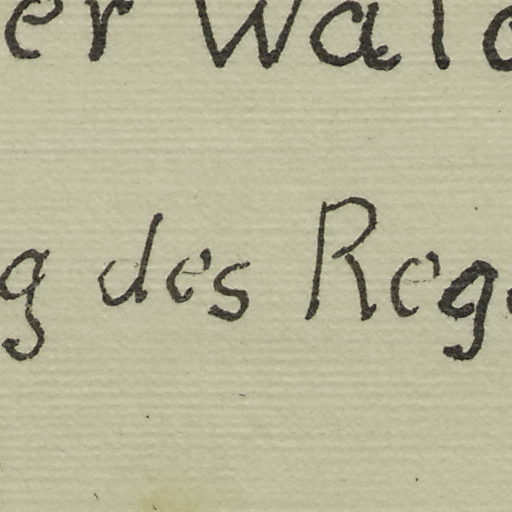 er Wald
g des Rege